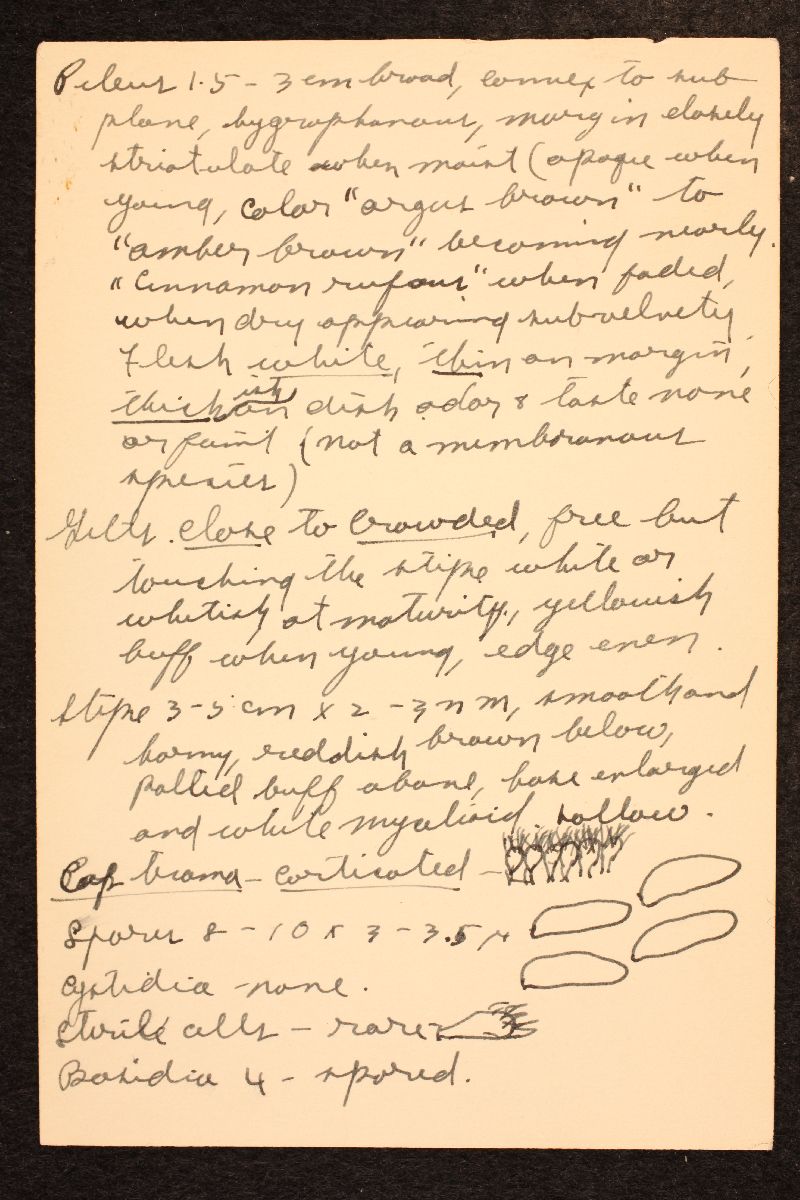 Pileus 1.5 - 3 cm broad, convex to sub
plane, hygrophanous, margin closely
striatulate when moist (opaque when
young, color "argus brown" to
"amber brown" becoming nearly
"Cinnamon rufous" when faded,
when dry appearing subvelvety
Flesh white, thin on margin,
thickish on disk odor & taste none
or faint (not a membranous
species)
Gills close to crowded, free but
touching the stipe white or
whitish at maturity, yellowish
buff when young, edge even.
Stipe 3-5 cm x 2-3 mm, smooth and
horny, reddish brown below,
pallid buff above, base enlarged
and white mycelioid. hollow.
Cap trama - corticated -
Spores 8 - 10 x 3 - 3.5 μ
Cystidia - none.
Sterile cells - rare -
Basidia 4 - spored.